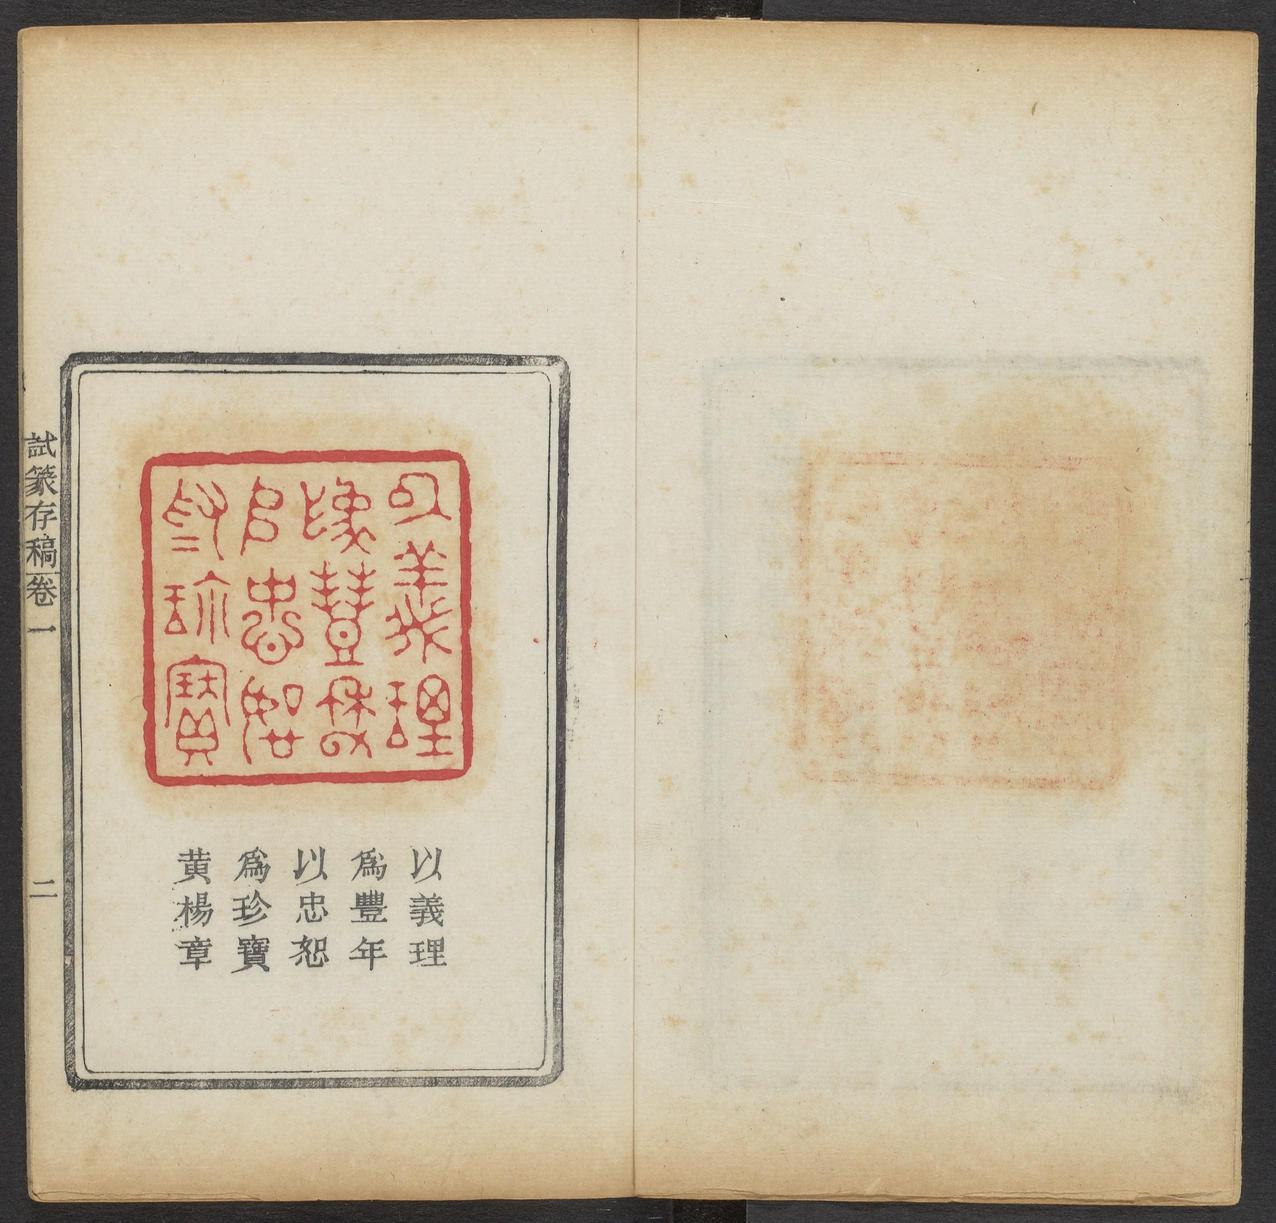 以義理
為豐年
以忠恕
為珍寶
以義理
爲豐年
以忠恕
爲珍寶
黄楊章
試篆存稿卷一
二